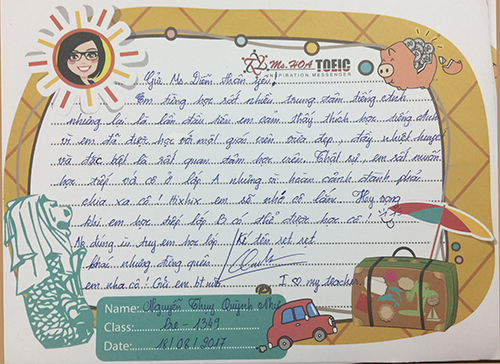 Ms. HOA TOEIC
INSPIRATION MESSENGER
Gửi Ms Diễn thân yêu!
Em từng học rất nhiều trung tâm tiếng anh
nhưng lại là lần đầu tiên em cảm thấy thích học tiếng anh
vì em đã được học với một giáo viên vừa đẹp, đầy nhiệt huyết
và đặc biệt là rất quan tâm học viên. Thật sự, em rất muốn
học tiếp với cô ở lớp A nhưng vì hoàn cảnh đành phải
chia xa cô! Hixhix em sẽ nhớ cô lắm. Hy vọng
khi em học tiếp lớp B có thể được học cô!
Ms đừng vì thấy em học lớp Kí tên sẹt sẹt
khác nhưng đừng quên
em nha cô! Gửi em bt
I ♡ my teacher.
Name: Nguyễn Thụy Quỳnh Như
Class: Pre - 1349
Date: 18/08/2017